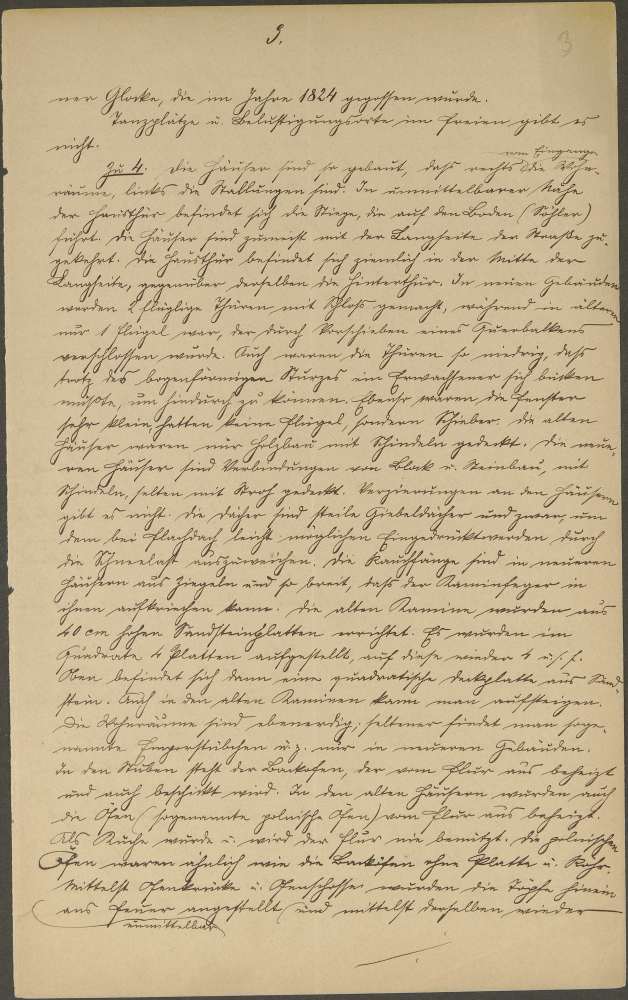 3.
3
ner Glocke, die im Jahre 1824 gegossen wurde.
Tanzplätze u. Belustigungsorte im Freien gibt es
nicht.
vom Eingange
Zu 4. Die Häuser sind so gebaut, daß rechts die Wohn-
räume, links die Stallungen sind. In unmittelbarer Nähe
der Hausthür befindet sich die Stiege, die auf den Boden (Söhler)
führt. Die Häuser sind zumeist mit der Langseite der Straße zu-
gekehrt. Die Hausthür befindet sich ziemlich in der Mitte der
Langseite, gegenüber derselben die Hinterthür. In neuen Gebäuden
werden 2 flüglige Thüren mit Schloß gemacht, während in älteren
nur 1 Flügel war, der durch Verschieben eines Querbalkens
verschlossen wurde. Auch waren die Thüren so niedrig, daß
trotz des bogenförmigen Sturzes ein Erwachsener sich bücken
mußte, um hindurch zu können. Ebenso waren die Fenster
sehr klein, hatten keine Flügel, sondern Schieber. Die alten
Häuser waren nur Holzbau mit Schindeln gedeckt. Die neue-
ren Häuser sind Verbindungen von Block u. Steinbau, mit
Schindeln, selten mit Stroh gedeckt. Verzierungen an den Häusern
gibt es nicht. Die Dächer sind steile Giebeldächer und zwar, um
dem bei Flachdach leicht möglichen Eingedrücktwerden durch
die Schneelast auszuweichen. Die Rauchfänge sind in neueren
Häusern aus Ziegeln und so breit, daß der Kaminfeger in
ihnen aufkriechen kann. Die alten Kamine wurden aus
40 cm hohen Sandsteinplatten errichtet. Es wurden im
Quadrate 4 Platten aufgestellt, auf diese wieder 4 u.s.f.
Oben befindet sich dann eine quadratische Deckplatte aus Sand-
stein. Auch in den alten Kaminen kann man aufsteigen.
Die Wohnräume sind ebenerdig; seltener findet man soge-
nannte Hinterstübchen u. z. nur in neueren Gebäuden.
In den Stuben steht der Backofen, der vom Flur aus beheizt
und auch beschickt wird. In den alten Häusern wurden auch
die Öfen (sogenannte polnische Öfen) vom Flur aus beheizt.
Als Küche wurde u. wird der Flur nie benützt. Die polnischen
Öfen waren ähnlich wie die Backöfen ohne Platte u. Rohr.
Mittelst Ofenkrücke u. Ofenschosse wurden die Töpfe hinein
ans Feuer angestellt und mittelst derselben wieder
unmittelbar